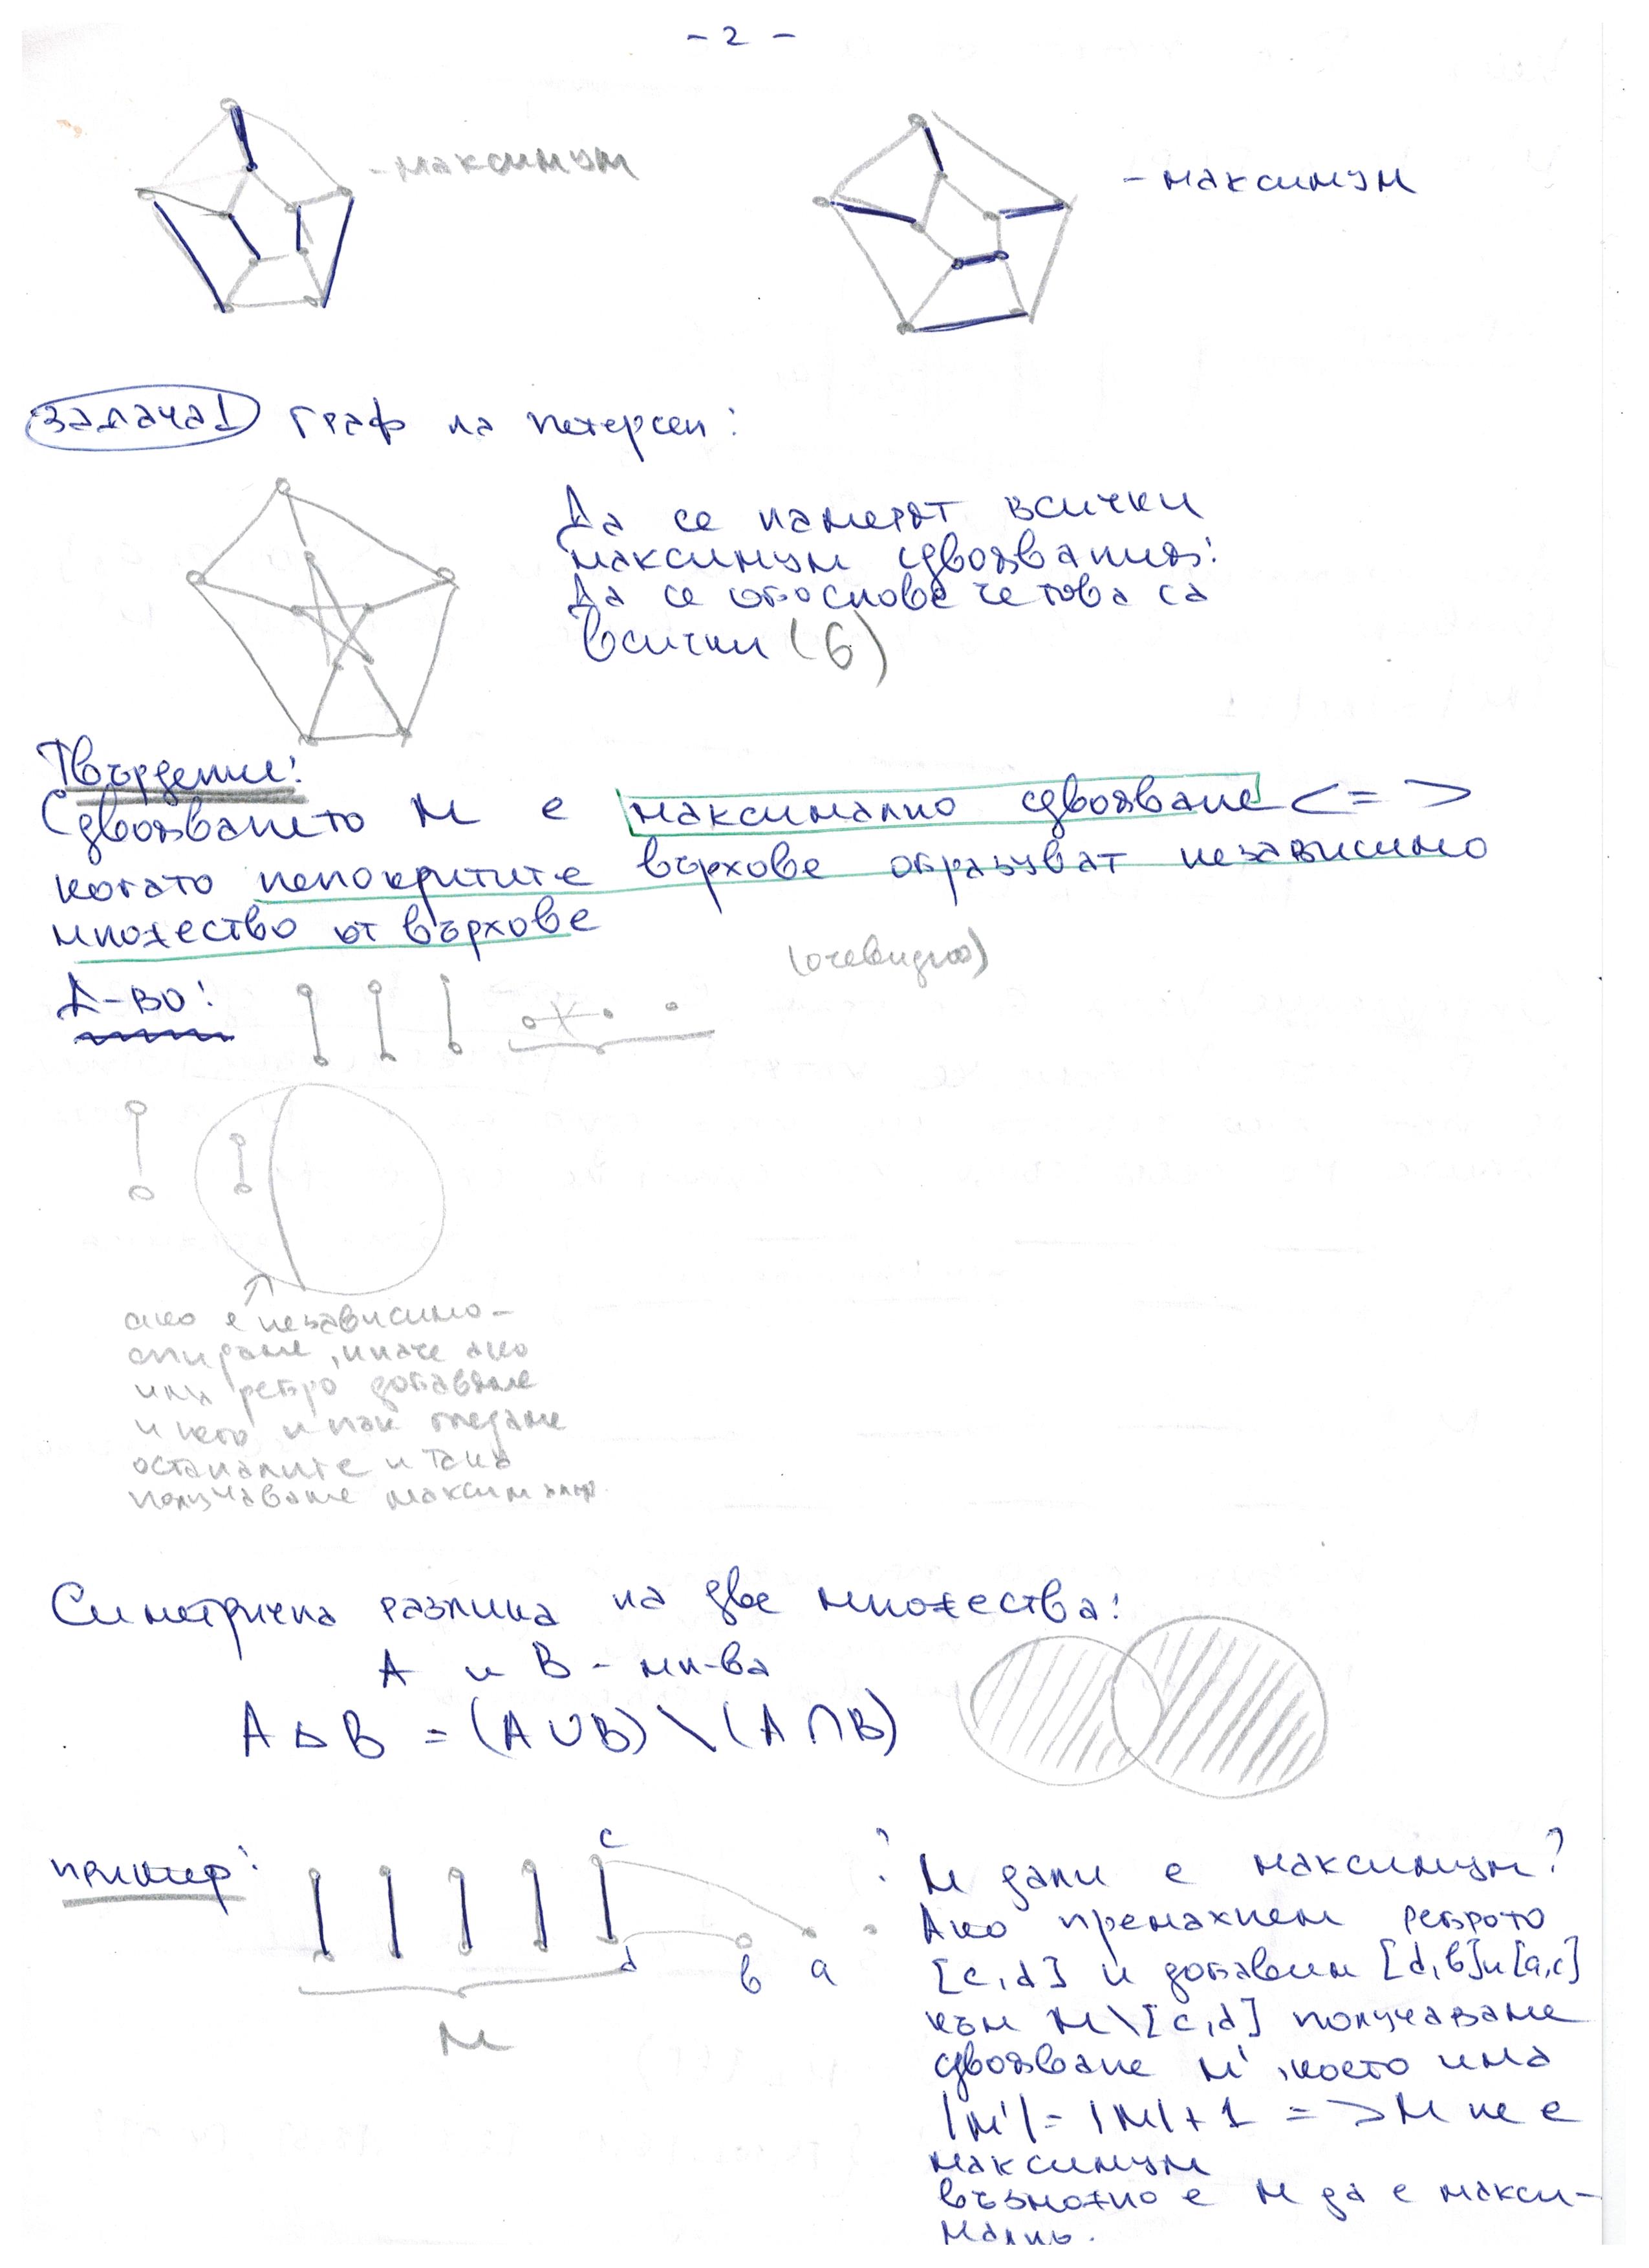 - 2 -
- максимум
- максимум
Задача 1 Граф на Петерсен:
Да се намерят всички
максимум сдвоявания!
Да се обоснове че това са
всички (6)
Твърдение:
Сдвояването M е максимално сдвояване <=>
когато непокритите върхове образуват независимо
множество от върхове
(очевидно)
Д-во:
ако е независимо -
спираме, иначе ако
има ребро добавяме
и него и пак гледаме
останалите и така
получаваме максимално.
Симетрична разлика на две множества:
A и B - мн-ва
A Δ B = (A ∪ B) \ (A ∩ B)
пример:
c
d
b
a
M
? M дали е максимум?
Ако премахнем реброто
[c,d] и добавим [d,b] и [a,c]
към M\[c,d] получаваме
сдвояване M', което има
|M'| = |M| + 1 => M не е
максимум
възможно е M да е макси-
мално.